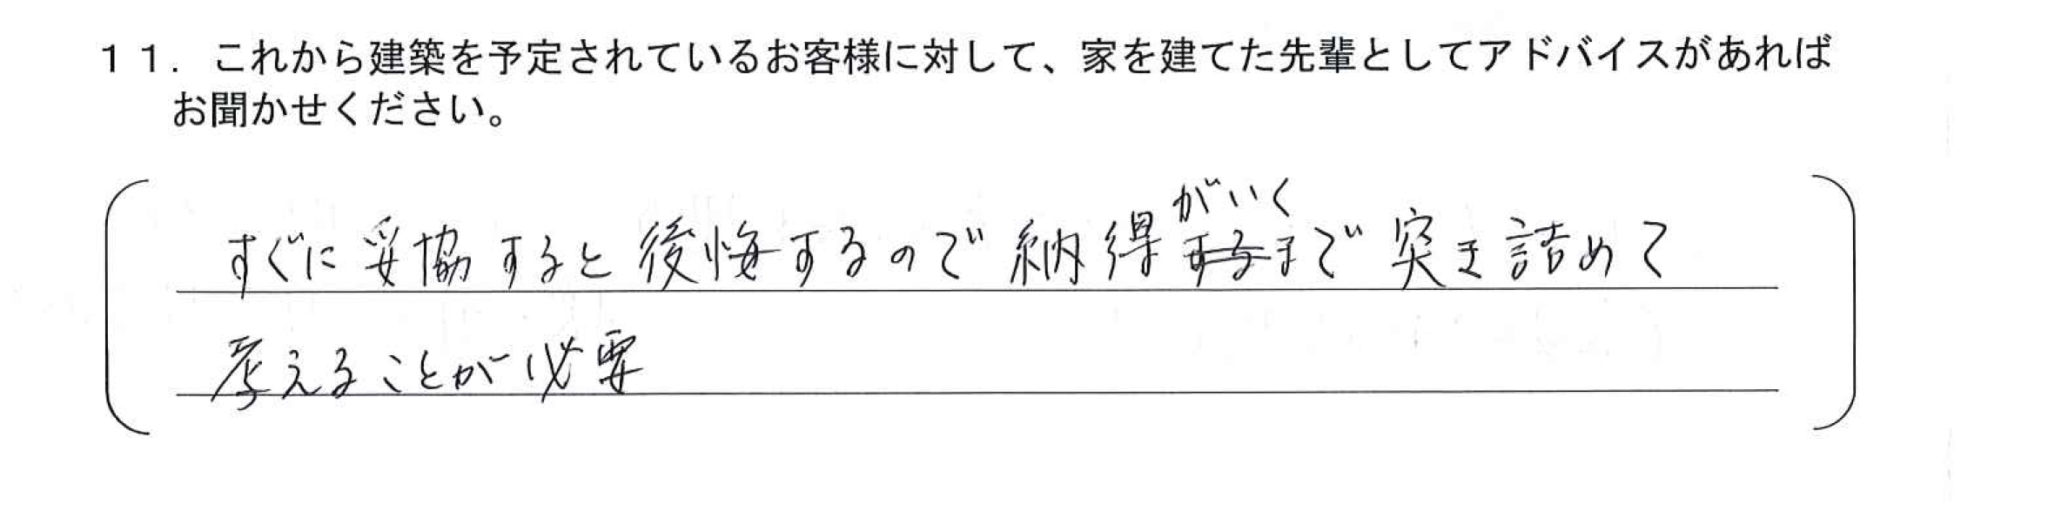 11．これから建築を予定されているお客様に対して、家を建てた先輩としてアドバイスがあれば
お聞かせください。
すぐに妥協すると後悔するので納得がいくまで突き詰めて
考えることが必要